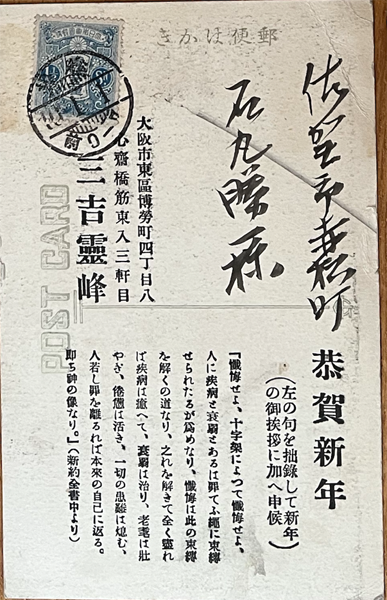 郵便はかき
佐賀市赤松町
石丸勝様
大阪市東區博勞町四丁目八
心齋橋筋東入三軒目
三吉靈峰
POST CARD
恭賀新年
（左の句を拙錄して新年
の御挨拶に加へ申候）
「懺悔せよ、十字架によつて懺悔せよ、
人に疾病と衰弱とあるは罪てふ繩に束縛
せられたるが爲めなり、懺悔は此の束縛
を解くの道なり、之れを解きて全く靈れ
ば疾病は癒へて、衰弱は治り、老耄は壯
やぎ、倦怠は活き、一切の患難は熄む、
人若し罪を離るれば本來の自己に返る。
即ち神の像なり。」（新約全書中より）